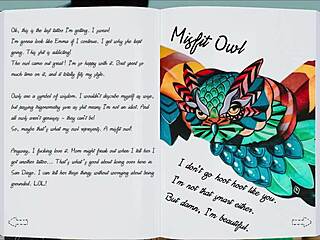 Oh, this is the last tattoo I'm getting. I swear!
I'm gonna look like Emma if I continue. I get why she kept
going. This shit is addicting!
The owl came out great! I'm so happy with it. Best spent so
much time on it, and it totally fits my style.
Owls are a symbol of wisdom. I wouldn't describe myself as wise,
but passing trigonometry sure as shit means I'm not an idiot. And
all owls aren't geniuses - they can't be!
So, maybe that's what my owl represents. A misfit owl!
Anyway, I fucking love it. Mom might freak out when I tell her I
got another tattoo... That's what's good about living over here in
San Diego. I can tell her these things without worrying about being
grounded. LOL!
Misfit Owl
I don't go hoot hoot like you.
I'm not that smart either.
But damn, I'm beautiful.